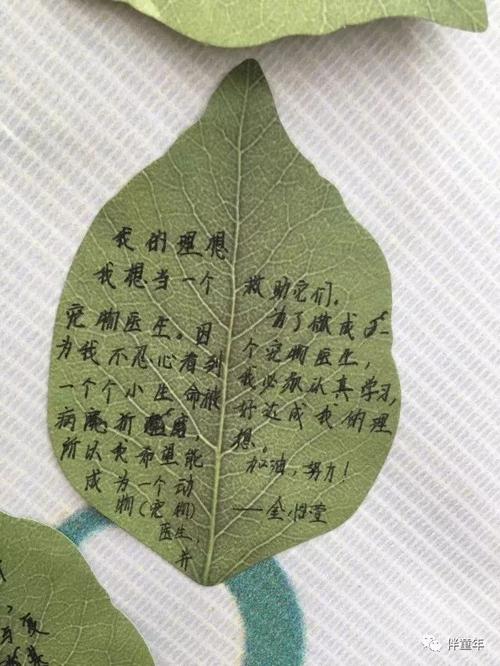 我的理想
我想当一个
宠物医生。因
为我不忍心看到
一个个小生命被
病魔折磨,
所以我希望能
成为一个动
物(宠物)
医生,
并
救助它们。
为了做成为一
个宠物医生,
我必须认真学习,
好达成我的理
想。
加油,努力!
——金怡萱
伴童年